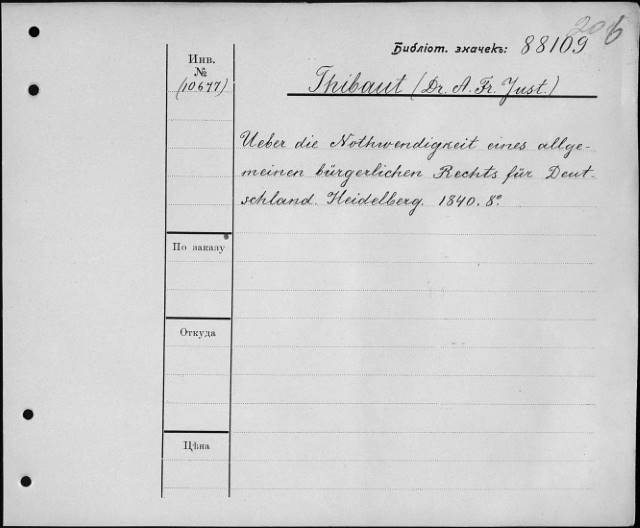 206
Библіот. значекъ: 88109
Инв.
№
(10677)
Thibaut (Dr. A. Fr. Just.)
Ueber die Nothwendigkeit eines allge-
meinen bürgerlichen Rechts für Deut-
schland. Heidelberg. 1840. 8°.
По заказу
Откуда
Цѣна